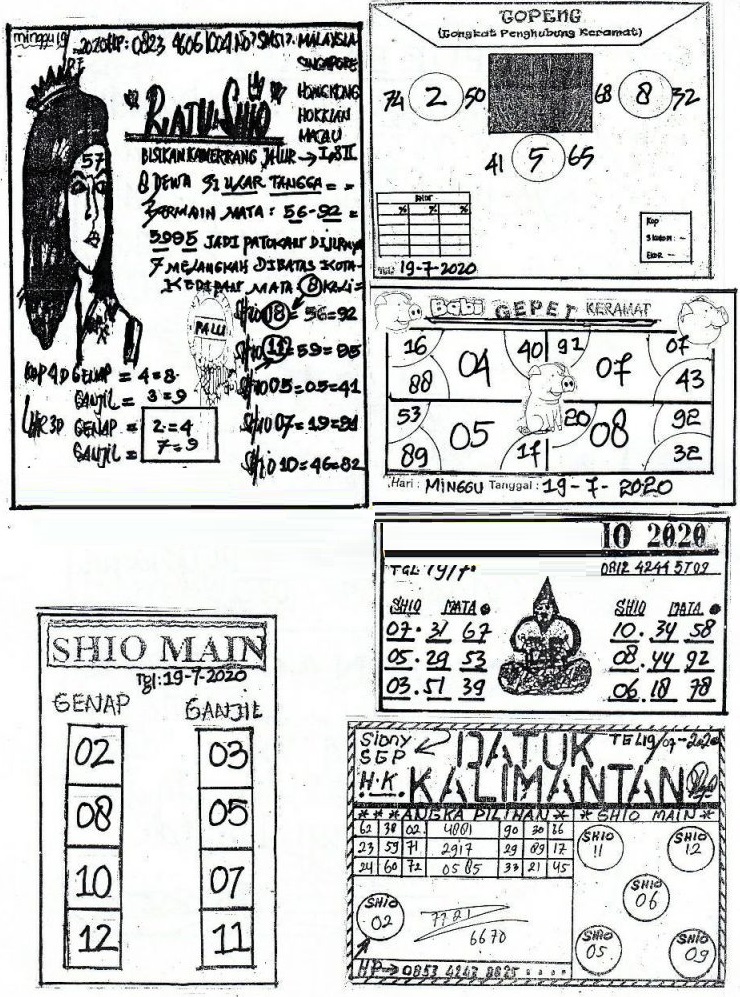 minggu 19
2020 HP: 0823 4606 1004
MALAYSIA
SINGAPORE
HONGKONG
HOKKIAN
MACAU
"RATU SHIO"
BISIKAN
JALUR → I, II
8 DEWA
ULAR TANGGA = =
BERMAIN MATA: 56-92 =
5995 JADI PATOKAN
7 MELANGKAH DIBATAS KOTA-
KEDIPAN MATA (8) KALI =
57
PALU
Shio 08 = 56=92
Shio 11 = 59=95
Shio 05=05=41
Shio 07=19=91
Shio 10=46=82
KOP 4D GENAP = 4=8
GANJIL = 3=9
3D GENAP = 2=4
GANJIL = 7=9
GOPENG
(Tongkat Penghubung Keramat)
74 2 50
68 8 32
41 5 65
Kop
EKOR : -
19-7-2020
Babi GEPET KERAMAT
16 04 40 92 07 07
88 43
53 05 20 08 92
89 17 32
Hari : MINGGU Tanggal : 19-7-2020
IO 2020
TGL 19/7
0812 4244 5709
SHIO MATA
07. 31 67
05. 29 53
03. 51 39
SHIO MATA
10. 34 58
08. 44 92
06. 18 78
SHIO MAIN
Tgl:19-7-2020
GENAP GANJIL
02 03
08 05
10 07
12 11
Sidny
SGP
H.K.
DATUK
KALIMANTAN
TGL19/07-2020
***ANGKA PILIHAN* *SHIO MAIN*
62 38 02. 4881 90 30 66
23 59 71 2917 29 89 17
24 60 72 0585 33 21 45
SHIO 11
SHIO 12
SHIO 06
SHIO 05
SHIO 09
SHIO 02
7781
6670
HP→0853 4243 8825